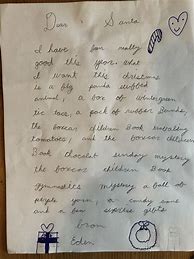 Dear Santa
I have been really
good this year. What
I want this christmas
is a big panda stuffed
animal, a box of wintergreen
tic tacs, a pack of rubber bands,
the boxcar children Book
tomatoes, and the boxcar children
Book chocolet sunday mystery
the boxcar children Book
gymnastics mystery a ball of
purple yarn, a candy cane
and a few surprise gifts
from
Eden